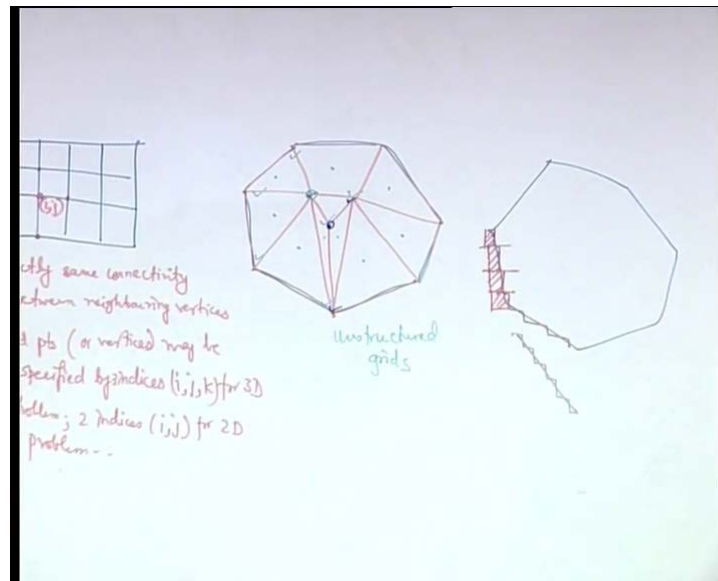 ctly same connectivity
etween neighbouring vertices
pts (or vertices) may be
specified by 3 indices (i,j,k) for 3D
oblem; 2 indices (i,j) for 2D
problem..
Unstructured
grids